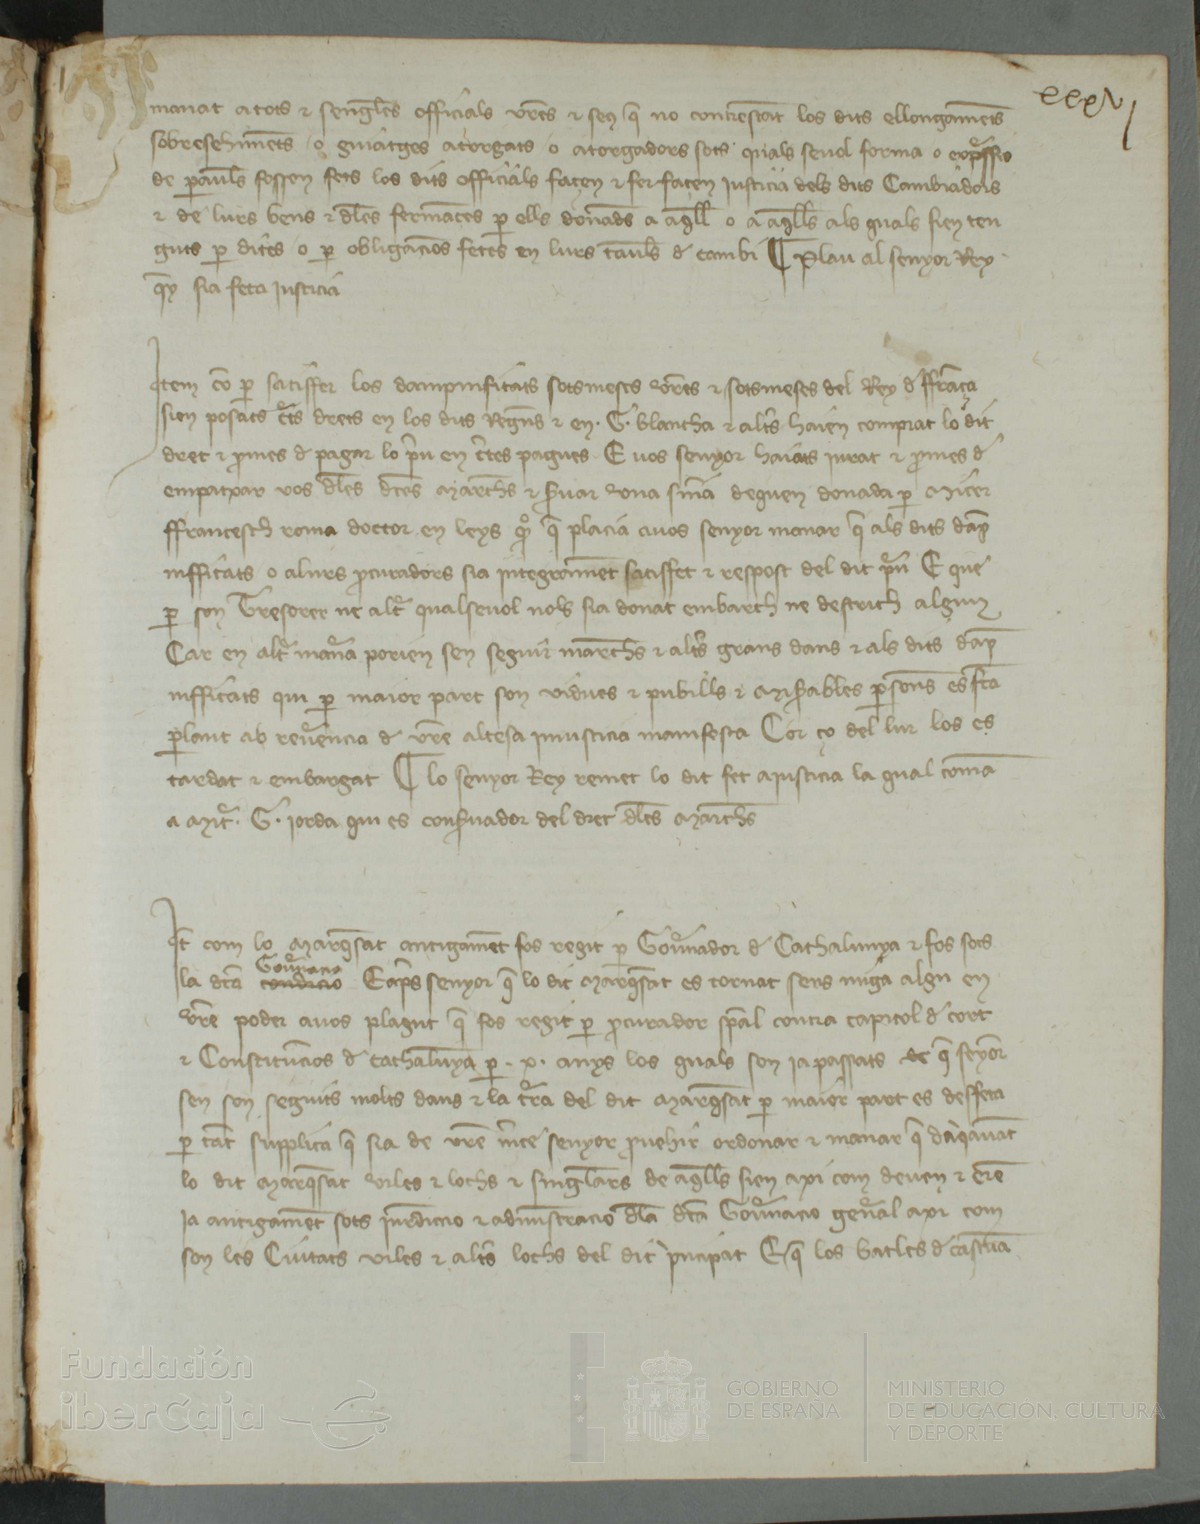 xxxvj
manat atots & sengles officials vres & seu q no contrestat los dits ellongamets
sobresehimets o guiatges atorgats o atorgadors sots quals seuol forma o expssio
de paraules fossen fets los dits officials façen & fer façen Justicia dels dits Cambiadors
& de lurs bens & dles fermaces p ells donads a aqll o a aqlls als quals sien ten
guts p dites o p obligacios fetes en lurs taules d cambi ¶ Plau al senyor Rey
qy sia feta Justicia
Item co p satisffer los dampnificats sotsmeses vres & sotsmeses del Rey d ffraça
sien posats cts drets en los dits Regns & en G. blancha & altrs haien comprat lo dit
dret & pmes d pagar lo pu en ctes pagues E vos senyor haiats jurat & pmes d
empatxar vos dles dtes Marchs & suar vna snia deguen donada p Micer
ffrancesch roma doctor en leys q placia auos senyor manar q als dits dap
nifficats o alurs pcuradors sia integramet satisffet & respost del dit pu E que
p son Tresorer ne altr qualseuol nols sia donat embarch ne destrich algun
Car en altr mana porien sen seguir marchs & altrs grans dans & als dits dap
nifficats qui p maior part son vidues & pubills & misables psones es fta
plant ab reuencia d vre altesa iniusticia manifesta Cor ço del lur los es
tardat & embargat ¶ lo senyor Rey remet lo dit fet ajusticia la qual coma
a Mic. G. jorda qui es consuador del dret dles Marchs
It com lo Marqsat antigamet fos regit p Gounador d Cathalunya & fos sots
la dca Gounacio condicio E aps senyor q lo dit Marqsat es tornat sens miga algu en
vre poder auos plagut q fos regit p pcurador spal contra capitol d cort
& Constitucios d cathalunya p .x. anys los quals son ja passats de q seyor
sen son seguits molts dans & la tra del dit Marqsat p maior part es desfeta
p tat supplica q sia de vre mce senyor puehir ordonar & manar q daqauat
lo dit Marqsat viles & lochs & singlars de aqlls sien axi com deuen & ere
ja antigamet sots jurdiccio & administracio dla dca Gounacio genal axi com
son les Ciutats viles & altrs lochs del dit pncipat E q los batles d